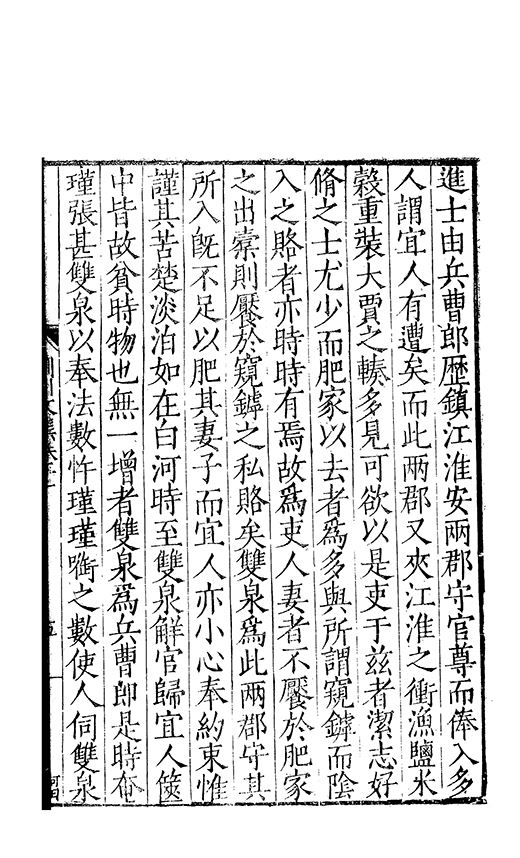 進士由兵曹郎歷鎮江淮安兩郡守官尊而俸入多
人謂宜人有遭矣而此兩郡又夾江淮之衝漁鹽米
糓重裝大賈之輳多見可欲以是吏于兹者潔志好
脩之士尤少而肥家以去者爲多與所謂窺罅而陰
入之賂者亦時時有焉故爲吏人妻者不饜於肥家
之出橐則饜於窺罅之私賂矣雙泉爲此兩郡守其
所入旣不足以肥其妻子而宜人亦小心奉約束惟
謹其苦楚淡泊如在白河時至雙泉觧官歸宜人篋
中皆故貧時物也無一增者雙泉爲兵曹郎是時奄
瑾張甚雙泉以奉法數忤瑾瑾銜之數使人伺雙泉
五